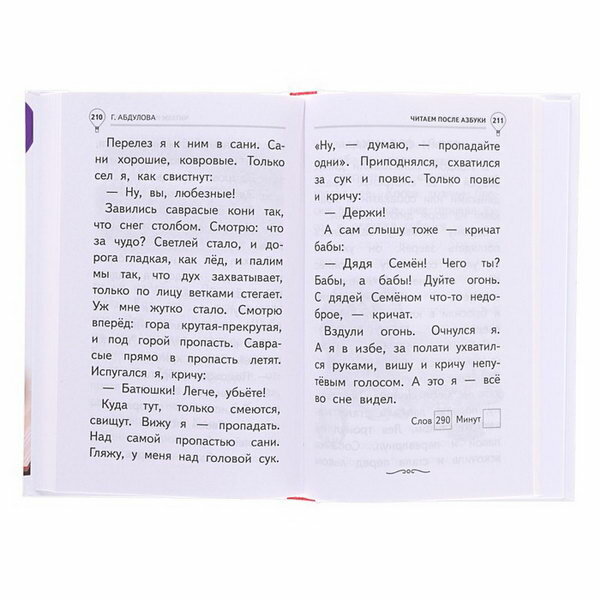 210 Г. АБДУЛОВА
Перелез я к ним в сани. Са-
ни хорошие, ковровые. Только
сел я, как свистнут:
— Ну, вы, любезные!
Завились саврасые кони так,
что снег столбом. Смотрю: что
за чудо? Светлей стало, и до-
рога гладкая, как лёд, и палим
мы так, что дух захватывает,
только по лицу ветками стегает.
Уж мне жутко стало. Смотрю
вперёд: гора крутая-прекрутая,
и под горой пропасть. Савра-
сые прямо в пропасть летят.
Испугался я, кричу:
— Батюшки! Легче, убьёте!
Куда тут, только смеются,
свищут. Вижу я — пропадать.
Над самой пропастью сани.
Гляжу, у меня над головой сук.
ЧИТАЕМ ПОСЛЕ АЗБУКИ 211
«Ну, — думаю, — пропадайте
одни». Приподнялся, схватился
за сук и повис. Только повис
и кричу:
— Держи!
А сам слышу тоже — кричат
бабы:
— Дядя Семён! Чего ты?
Бабы, а бабы! Дуйте огонь.
С дядей Семёном что-то недо-
брое, — кричат.
Вздули огонь. Очнулся я.
А я в избе, за полати ухватил-
ся руками, вишу и кричу непу-
тёвым голосом. А это я — всё
во сне видел.
Слов 290 Минут